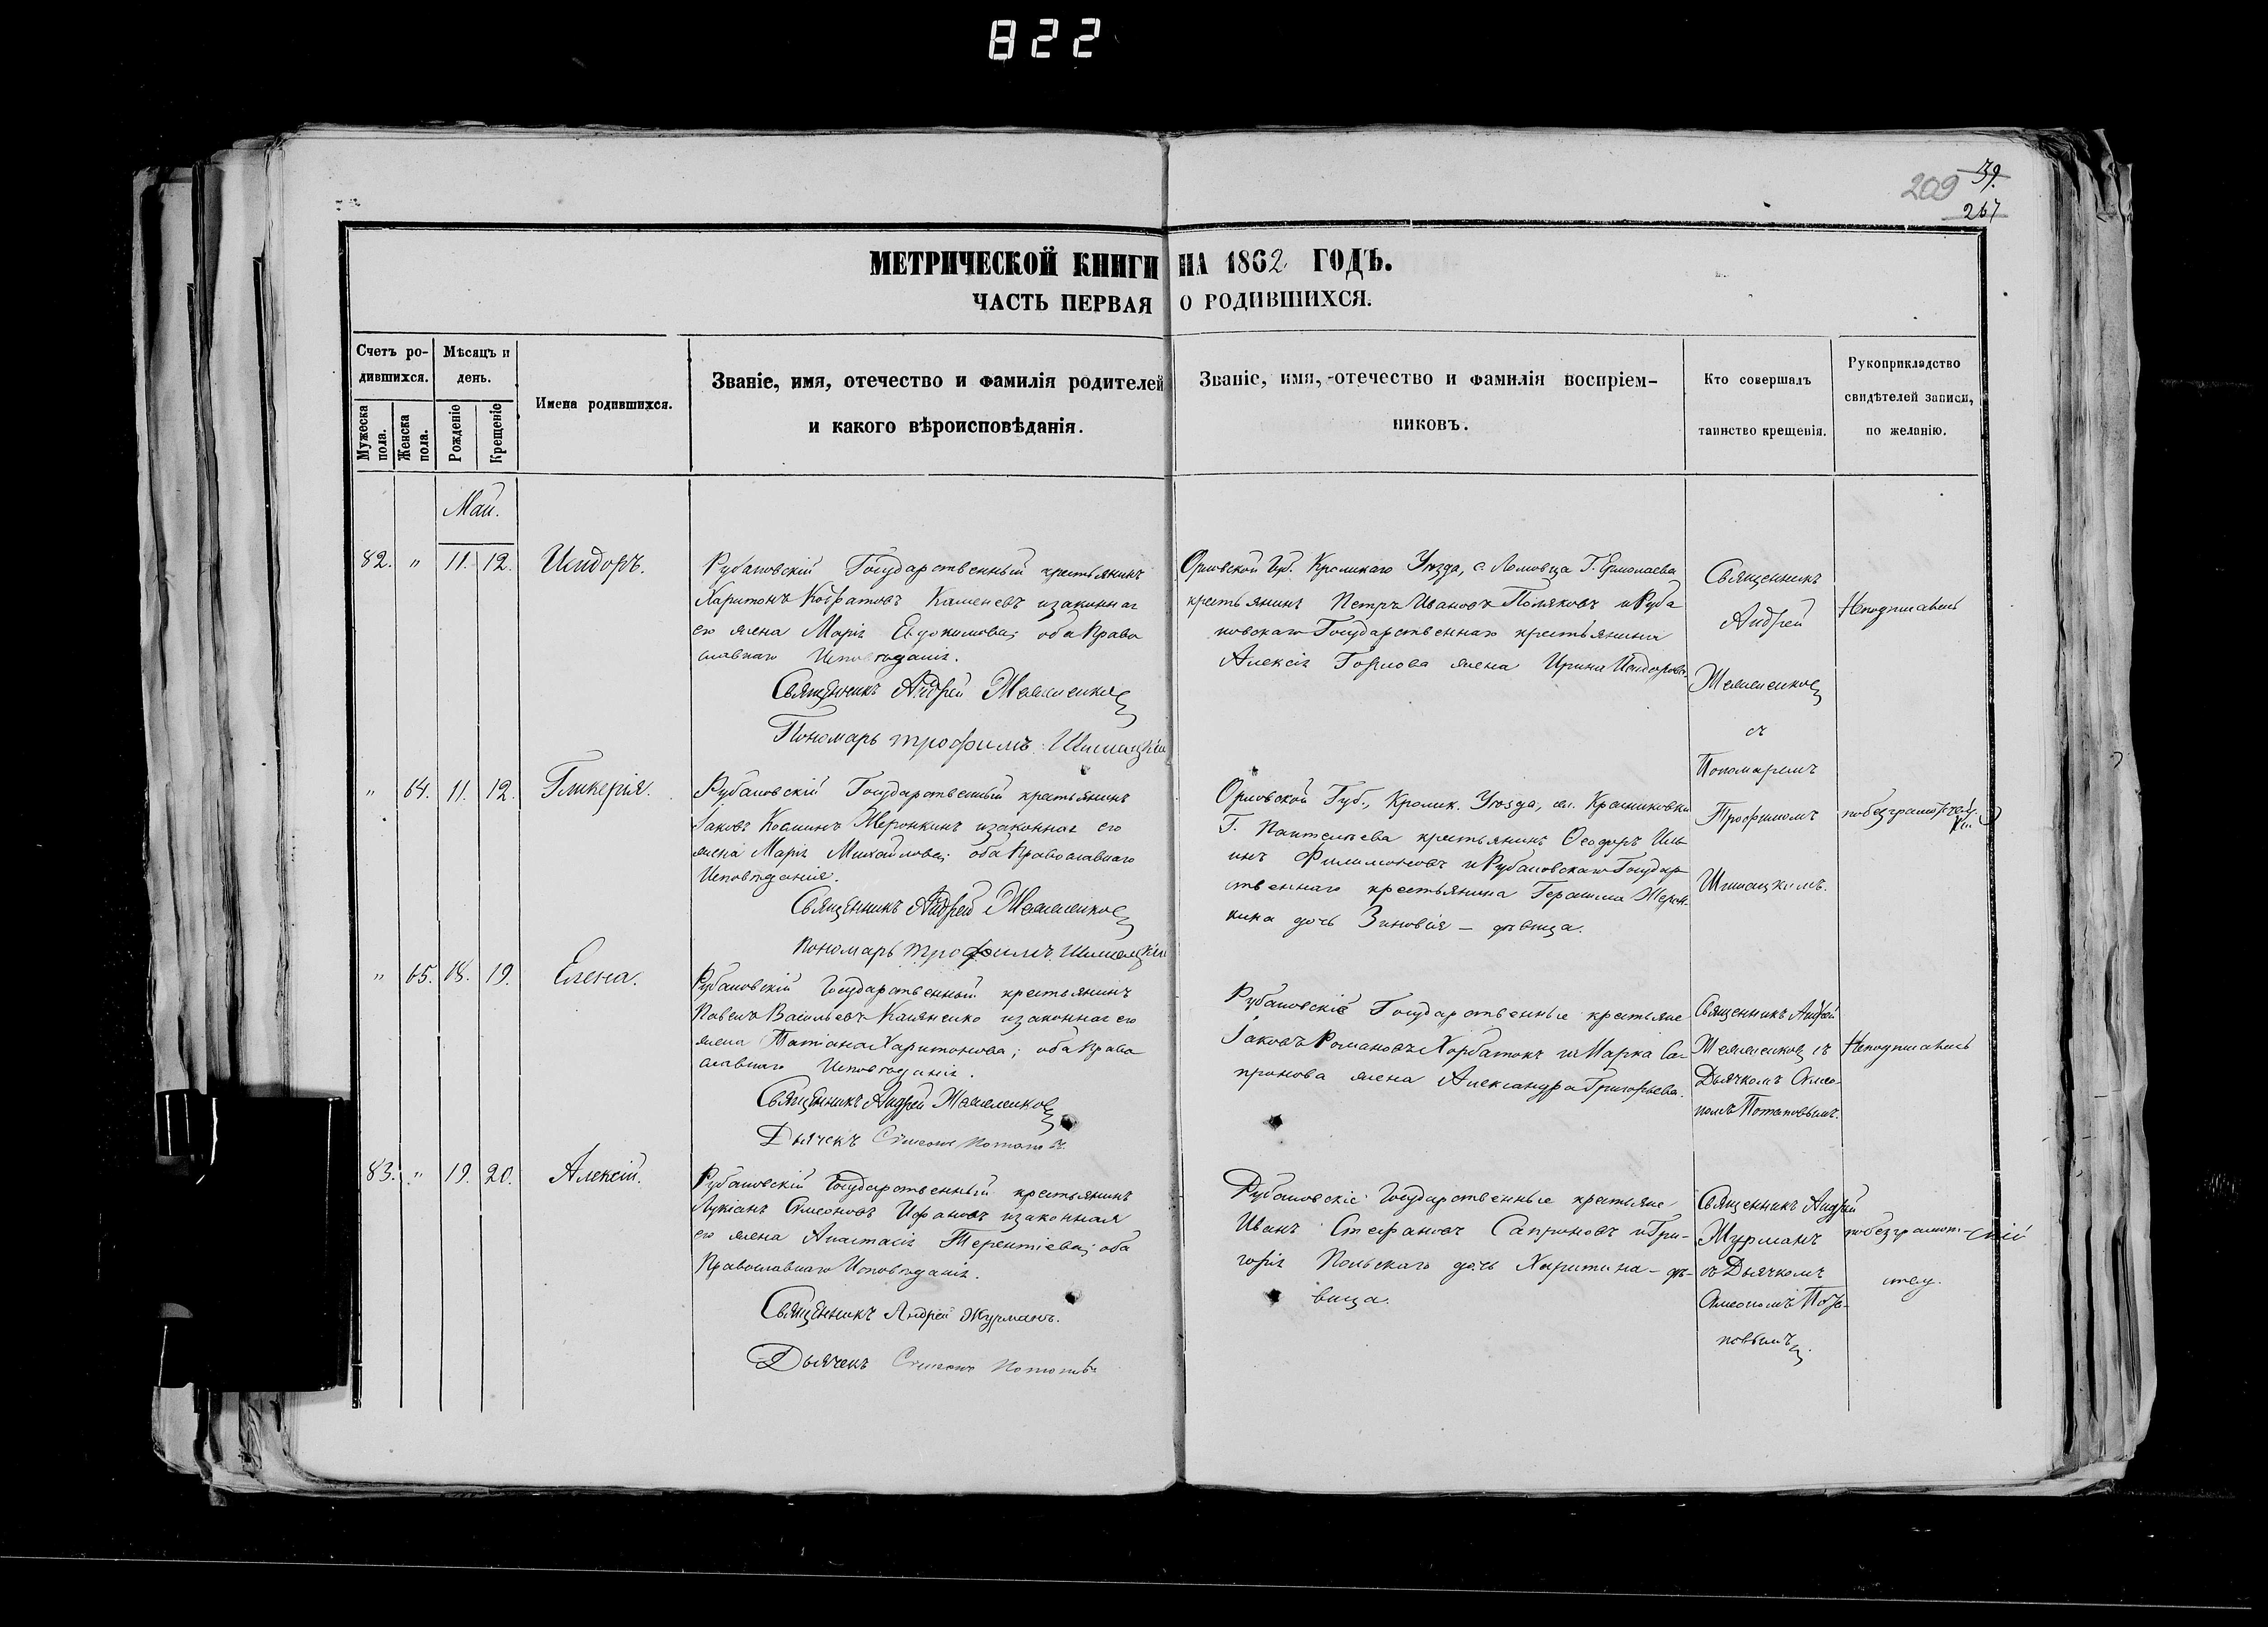 822
209 39.
267
МЕТРИЧЕСКОЙ КНИГИ НА 1862 ГОДЪ.
ЧАСТЬ ПЕРВАЯ О РОДИВШИХСЯ.
Счетъ ро-
дившихся.
Мужеска пола.
Женска пола.
Мѣсяцъ и
день.
Рожденіе
Крещеніе
Имена родившихся.
Званіе, имя, отечество и фамилія родителей
и какого вѣроисповѣданія.
Званіе, имя, отечество и фамилія воспріем-
никовъ.
Кто совершалъ
таинство крещенія.
Рукоприкладство
свидѣтелей записи,
по желанію.
Май.
82. " 11. 12. Исидоръ.
Рубановскій Государственный крестьянинъ
Харитонъ Каменевъ и законная
его жена Марія Евдокимова; оба Право
славнаго Исповѣданія.
Священникъ Андрей
Пономарь Трофимъ
Орловской Губ. Кромскаго Уѣзда, с. Ломовца Г. Ермолаева
крестьянинъ Петръ Ивановъ Поляковъ и Руба
новскаго Государственнаго крестьянина
Алексія Горлова жена Ирина Исидорова.
Священникъ
Андрей
съ
Пономаремъ
Трофимомъ
Неподписались
" 64. 11. 12. Гликерія.
Рубановскій Государственный крестьянинъ
Іаковъ Косминъ Жеронкинъ и законная его
жена Марія Михайлова; оба Православнаго
Исповѣданія.
Священникъ Андрей
Пономарь Трофимъ
Орловской Губ., Кромск. Уѣзда,
Г. Пантелѣева крестьянинъ Ѳеодоръ Иль
инъ Филимоновъ и Рубановскаго Государ
ственнаго крестьянина Герасима Жерон-
кина дочь Зиновія — дѣвица.
" 65. 18. 19. Елена.
Рубановскій Государственный крестьянинъ
Павелъ Васильевъ и законная его
жена Татіана Харитонова; оба Право
славнаго Исповѣданія.
Священникъ Андрей
Дьячекъ Симеонъ Потаповъ.
Рубановскіе Государственные крестьяне
Іаковъ Романовъ Хорбатокъ и Марка Са
пронова жена Александра Григорьева.
Священникъ Андрей
съ
Дьячкомъ Симео-
номъ Потаповымъ.
Неподписались
83. " 19. 20. Алексій.
Рубановскій Государственный крестьянинъ
Лукіанъ Симеоновъ и законная
его жена Анастасія Терентіева; оба
Православнаго Исповѣданія.
Священникъ Андрей Журманъ.
Дьячекъ Симеонъ Потаповъ
Рубановскіе Государственные крестьяне
Иванъ Стефановъ Сапроновъ и Гри-
горія Польскаго дочь Харитина — дѣ-
вица.
Священникъ Андрей
Журманъ
съ Дьячкомъ
Симеономъ Пота-
повымъ.